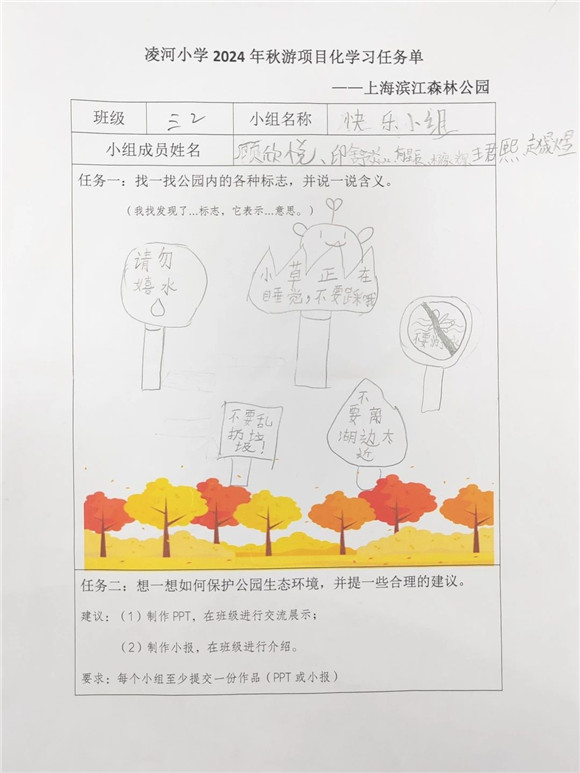 凌河小学 2024 年秋游项目化学习任务单
——上海滨江森林公园
班级 三2 小组名称 快乐小组
小组成员姓名 顾欣悦、 王君熙
任务一：找一找公园内的各种标志，并说一说含义。
（我找发现了…标志，它表示…意思。）
请勿
嬉水
小草正在
睡觉，不要踩我
不要乱
扔垃
圾！
不
要
湖边
近
任务二：想一想如何保护公园生态环境，并提一些合理的建议。
建议：（1）制作 PPT，在班级进行交流展示；
（2）制作小报，在班级进行介绍。
要求：每个小组至少提交一份作品（PPT 或小报）